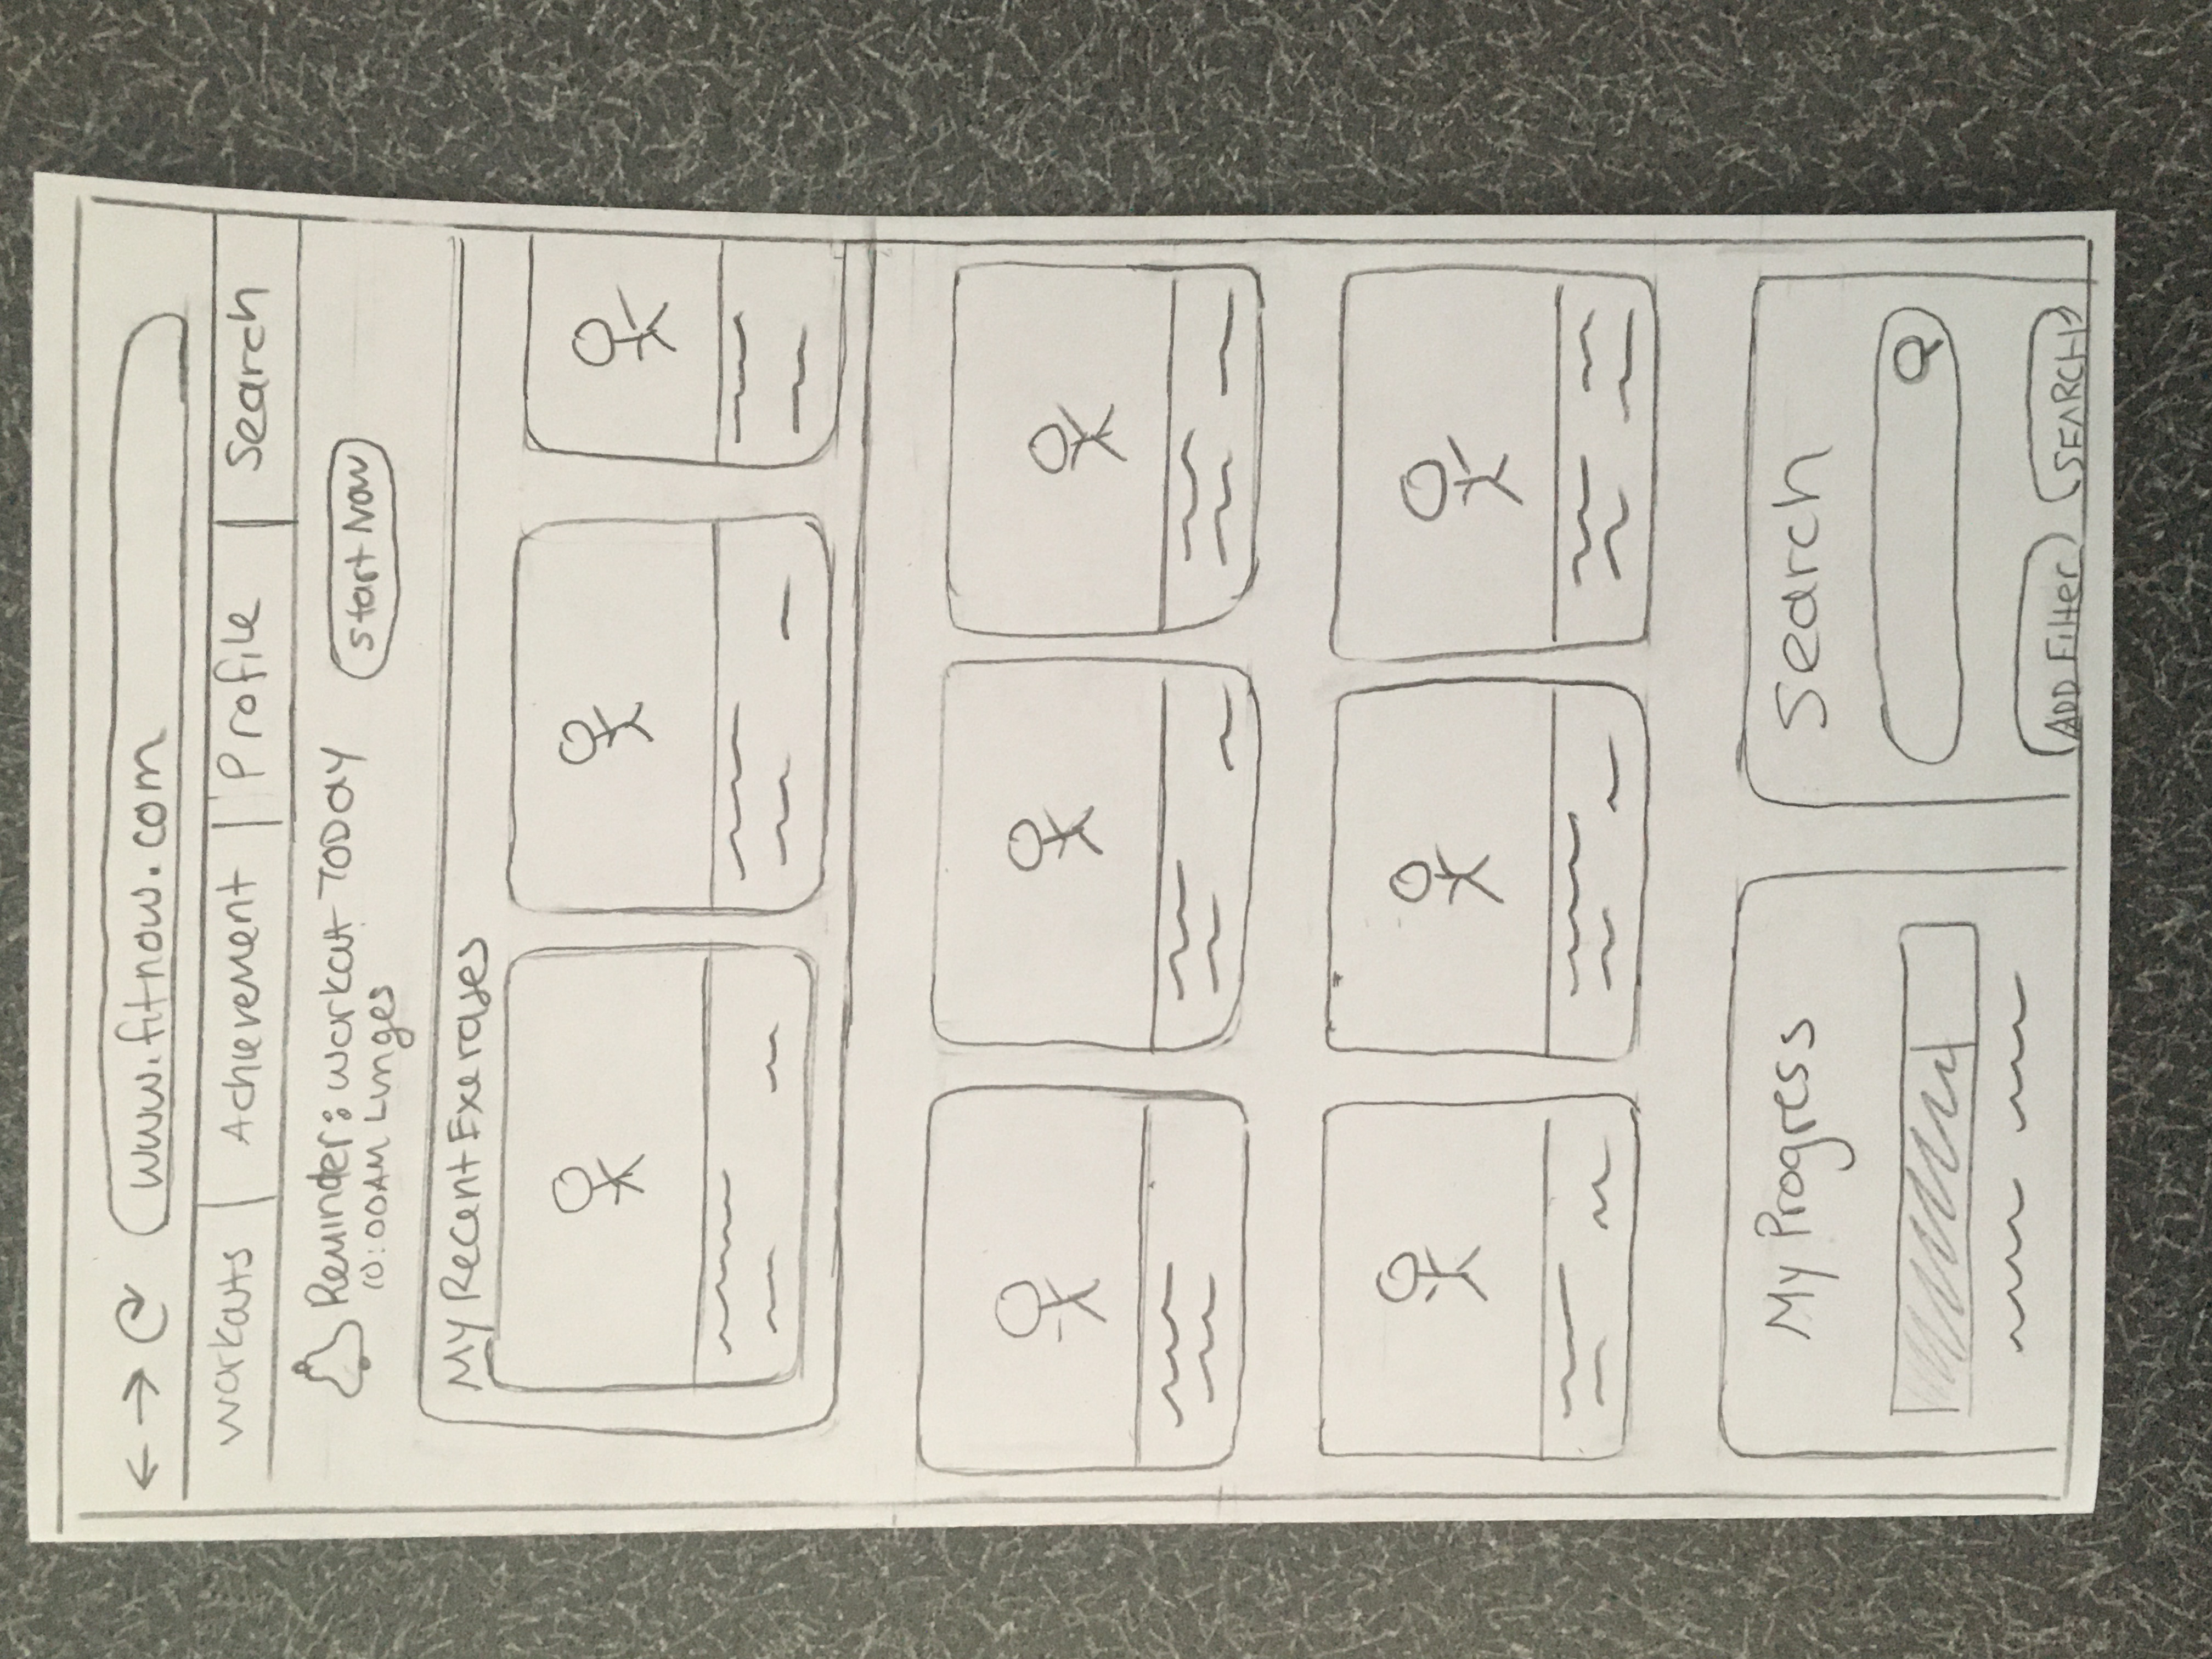 www.fitnow.com
Workouts Achievement Profile Search
Reminder: Workout TODAY
10:00AM Lunges
Start Now
My Recent Exercises
My Progress
Search
ADD Filter SEARCH